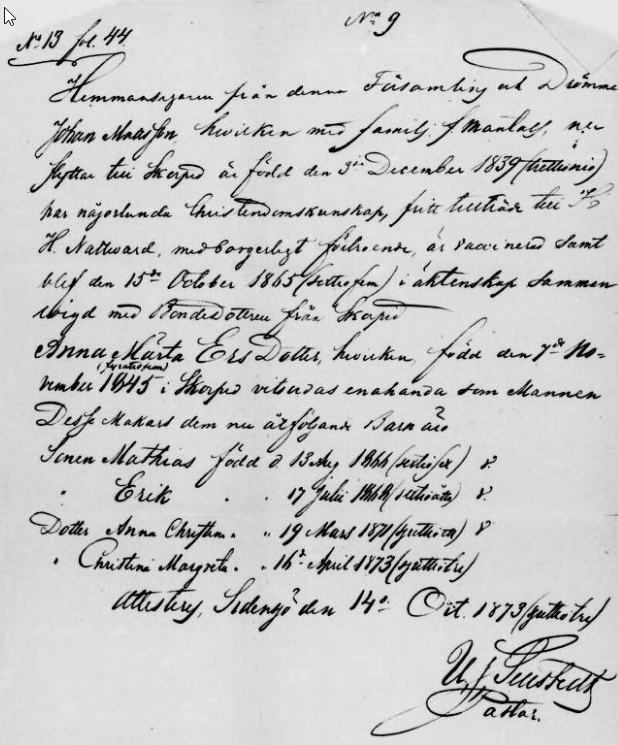 No 9
No 13 fol. 44
Hemmansegaren från denna Församling och Drömme
Johan Matsson, hvilken med familj, f. Mantals, nu
flyttar till Skorped är född den 3die December 1839 (trettionio)
har någorlunda Christendomskunskap, fritt tillträde till
H. Nattward, medborgerligt förtroende, är vaccinerad samt
blef den 15de October 1865 (sextiofem) i äktenskap samman
wigd med Bondedottren från Skorped
Anna Märta Ersdotter, hvilken, född den 7nde No=
(fyratiofem)
vember 1845 i Skorped vitsordas enahanda som Mannen
Desse Makars dem nu åtföljande Barn äro
Sonen Mathias född d. 13 Aug 1866 (sextiosex) v.
" Erik " " 17 Julii 1868 (sextioåtta) v.
Dotter Anna Christina " " 19 Mars 1871 (sjuttioen) v
" Christina Margreta " " 16de April 1873 (sjuttiotre)
Attestery, Sidensjö den 14de Oct. 1873 (sjuttiotre)
Pastor.